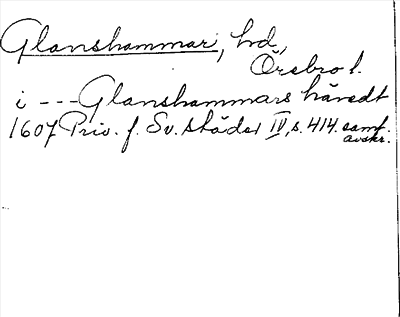 Glanshammar, hd,
Örebro l.
i --- Glanshammars häredt
1607 Priv. f. Sv. städer IV, s. 414. samt.
avskr.